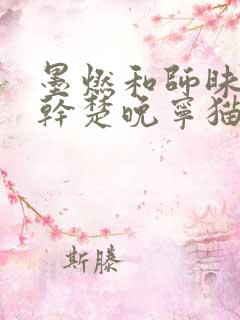 墨燃和師昧
幹楚晚寧猫
斯滕